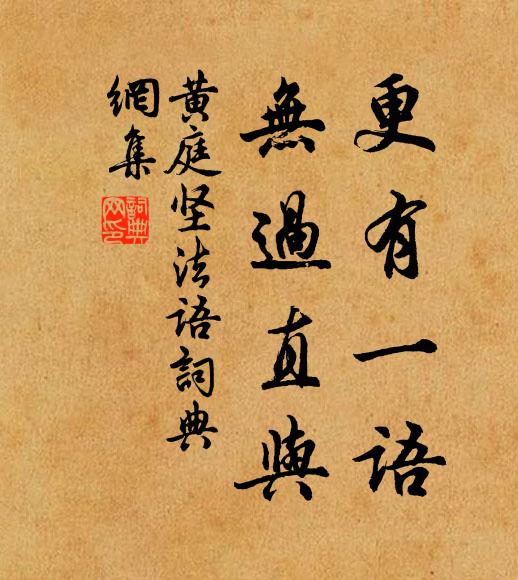 更有一语
無過直與
黄庭坚法语詞典
網集
詞典
网印